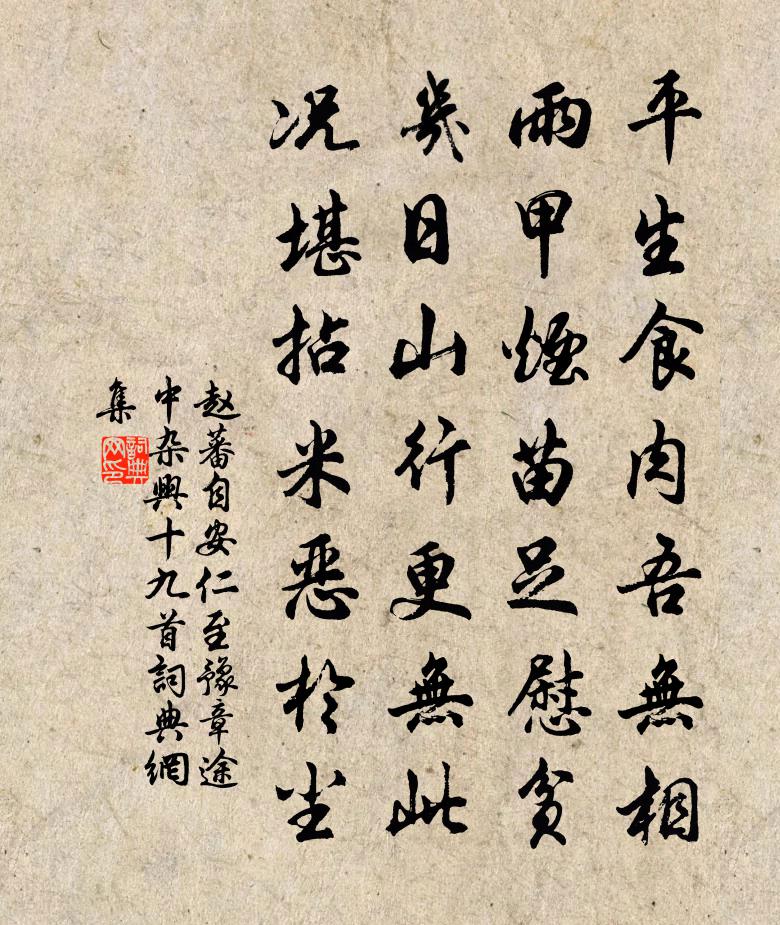 平生食肉吾無相
雨甲煙苗足慰貧
幾日山行更無此
况堪拈米惡於尘
赵蕃自安仁至豫章途
中杂興十九首詞典網
集
詞典
网印